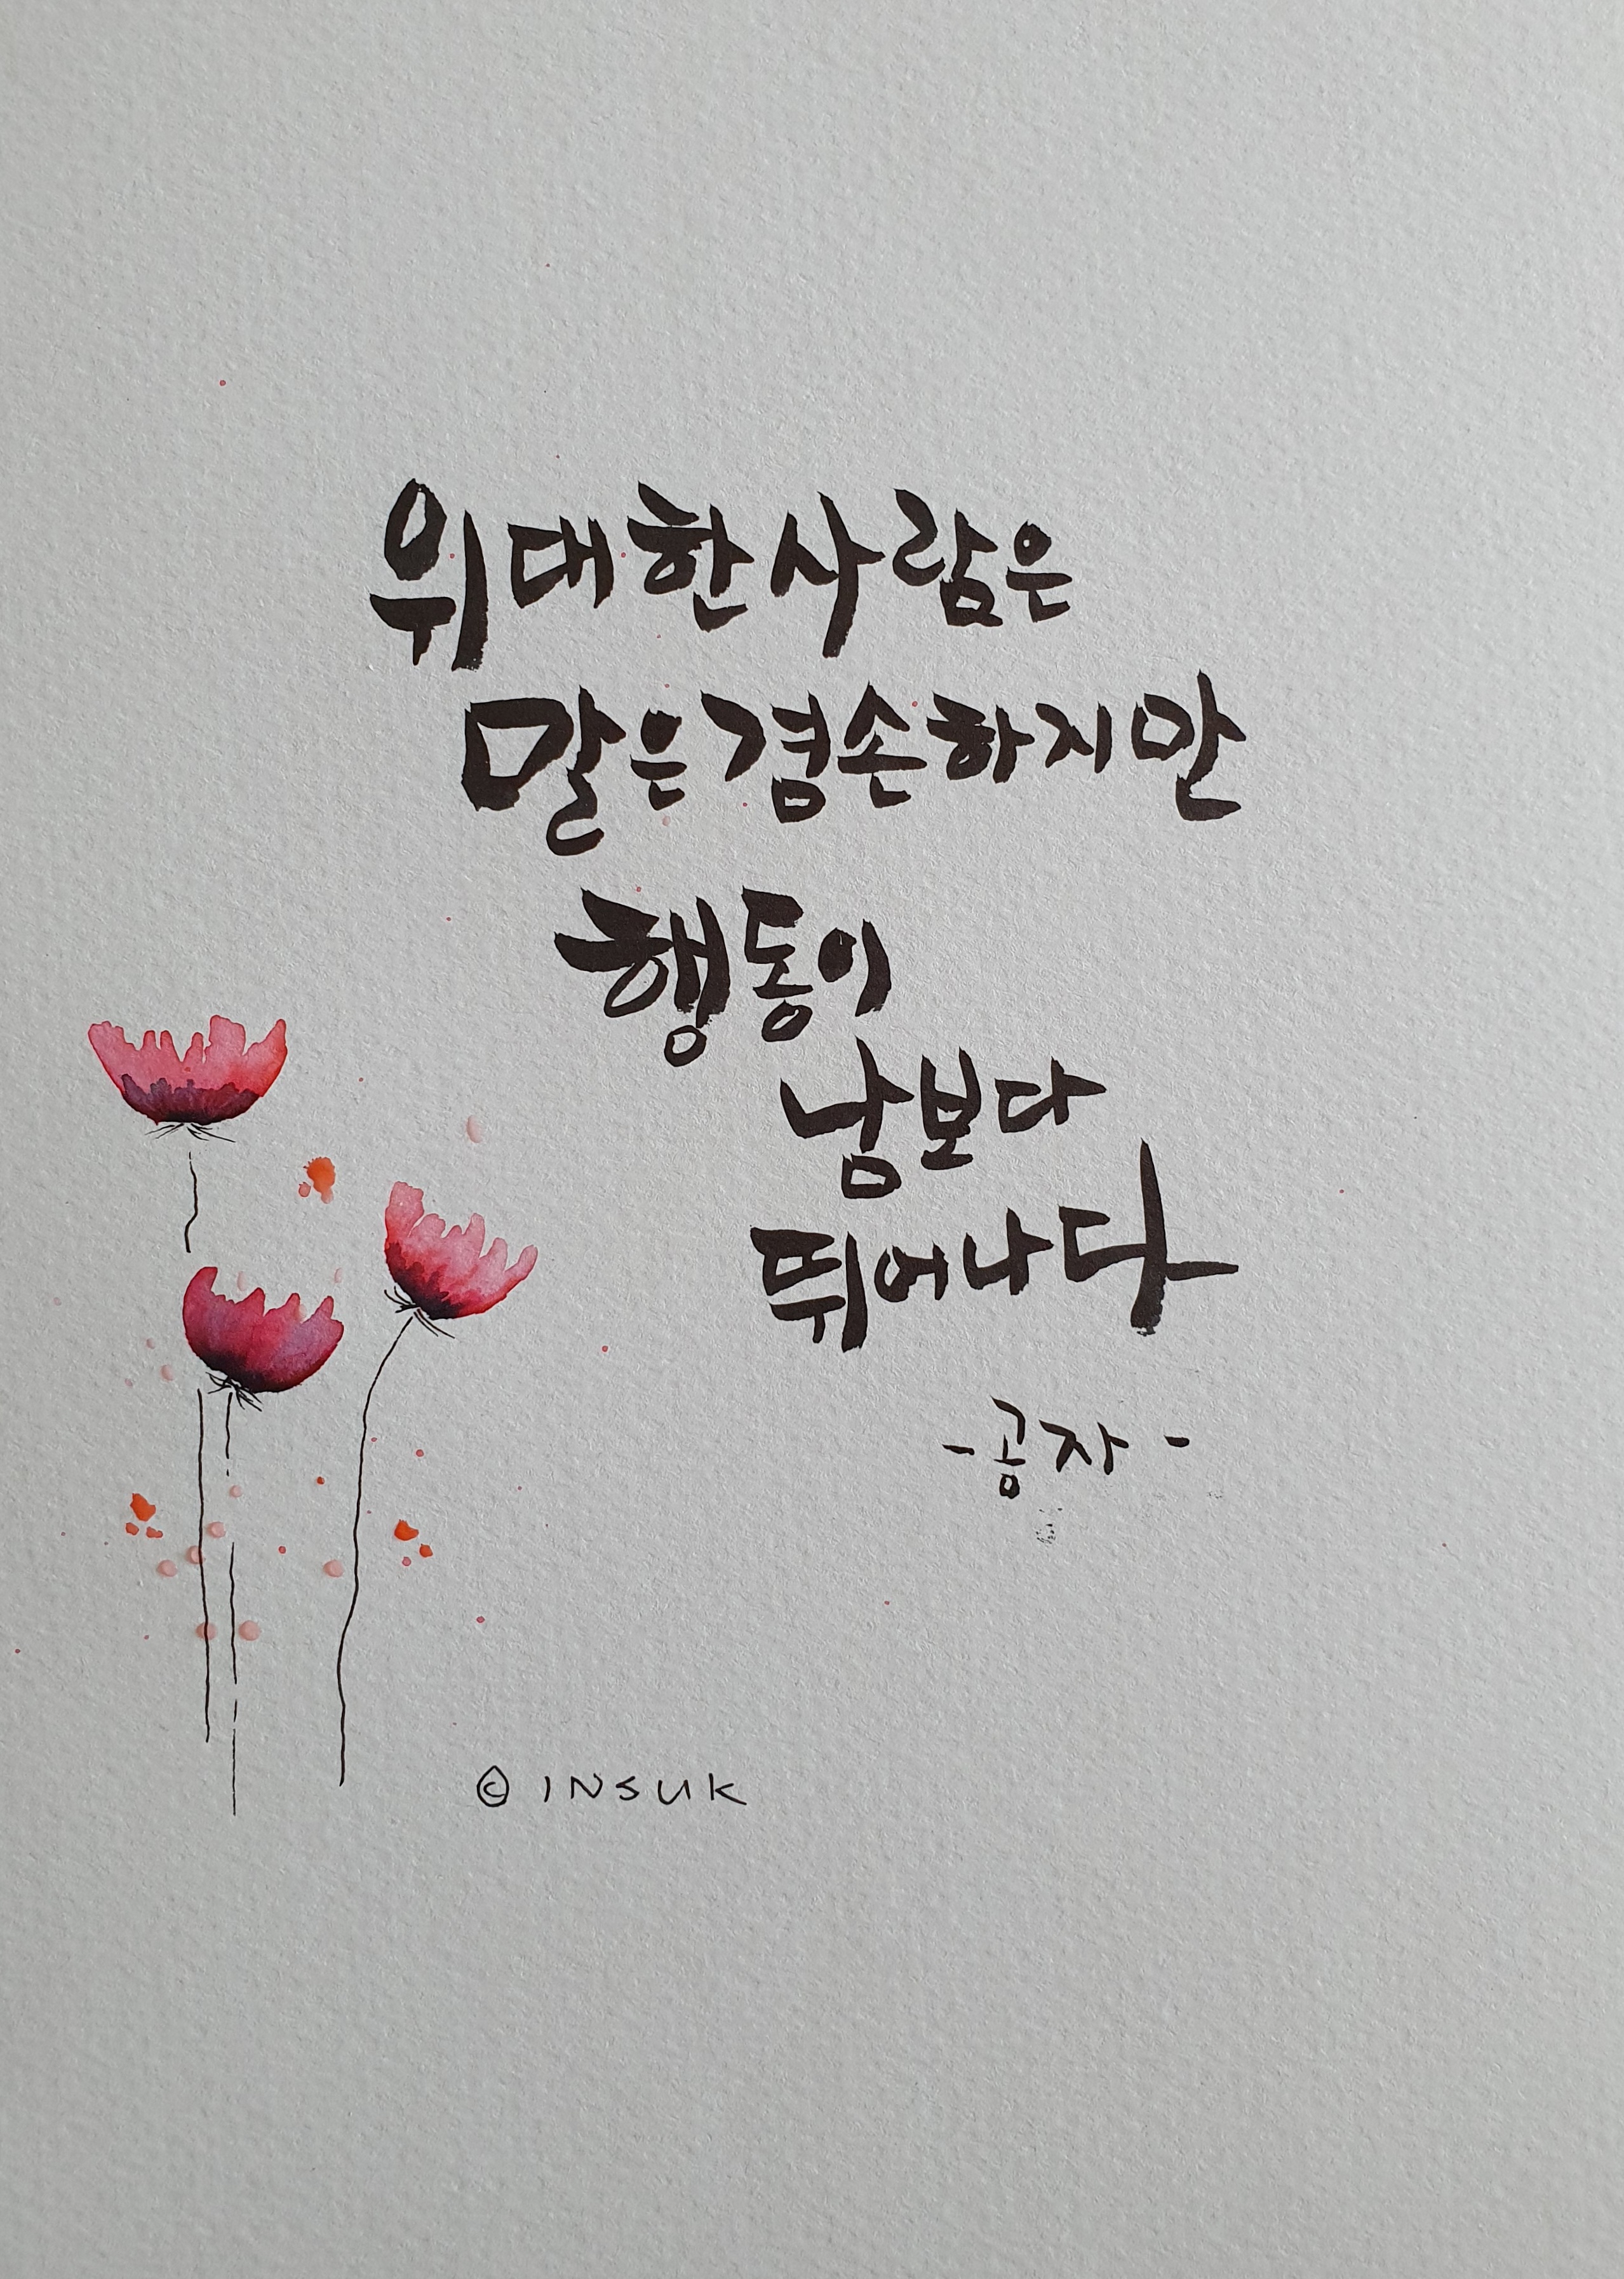 위대한 사람은
말은 겸손하지만
행동이
남보다
뛰어나다
-공자-
© INSUK